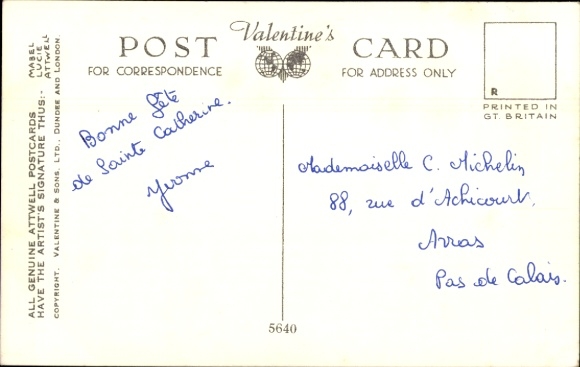 ALL GENUINE ATTWELL POSTCARDS
HAVE THE ARTIST'S SIGNATURE THUS:-
MABEL
LUCIE
ATTWELL
COPYRIGHT. VALENTINE & SONS. LTD., DUNDEE AND LONDON.
Valentine's
POST CARD
FOR CORRESPONDENCE
FOR ADDRESS ONLY
R
PRINTED IN
GT. BRITAIN
Bonne fête
de Sainte Catherine.
Yvonne
Mademoiselle C. Michelin
88, rue d'Achicourt.
Arras
Pas de Calais.
5640